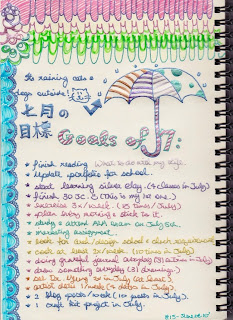 It's raining cats &
dogs outside!
七月の
目標
Goals of 7:
* finish reading What to do with my life.
* Update portfolio for school.
* start learning silver clay. (4 classes in July)
* finish 30 JC. (This is my 1st one.)
* exercise 3x/week. (15 times/July).
* plan every morning & stick to it.
* study & attend exam on July 5th.
* marketing assignment.
* look for art/design school & check requirement
* cook at least 2x/week (10 times/July).
* doing grateful journal everyday (31 entries in July)
* draw something everyday (31 drawings).
* at least in July
* artist date 1/week (4 dates in July).
* 2 blog posts/week (10 posts in July).
* 1 craft kit project in July.